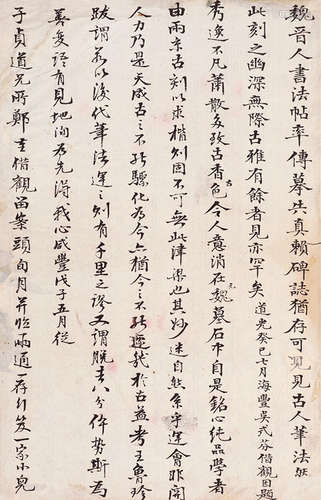 魏晉人書法帖率傳摹失真賴碑誌猶存可見古人筆法然
此刻之幽深無際古雅有餘者見亦罕矣道光癸巳七月海豐吳式芬借觀因題
秀逸不凡蕭散多致古香古色令人意消在元魏墓石中自是銘心絕品學者
由兩京古刻以求楷則固不可無此津梁也其妙造自然系乎運會非關
人力乃是天成古之不能驟化為今亦猶今之不能遽幾於古益考王魯珍
跋謂若以後代筆法運之則有千里之謬又謂脫去八分作勢斯為
美受語有見地洵為先得我心咸豐戊午五月從
子貞道兄所鄭重借觀留案頭旬月并臨兩通一存行笈一寄小兒